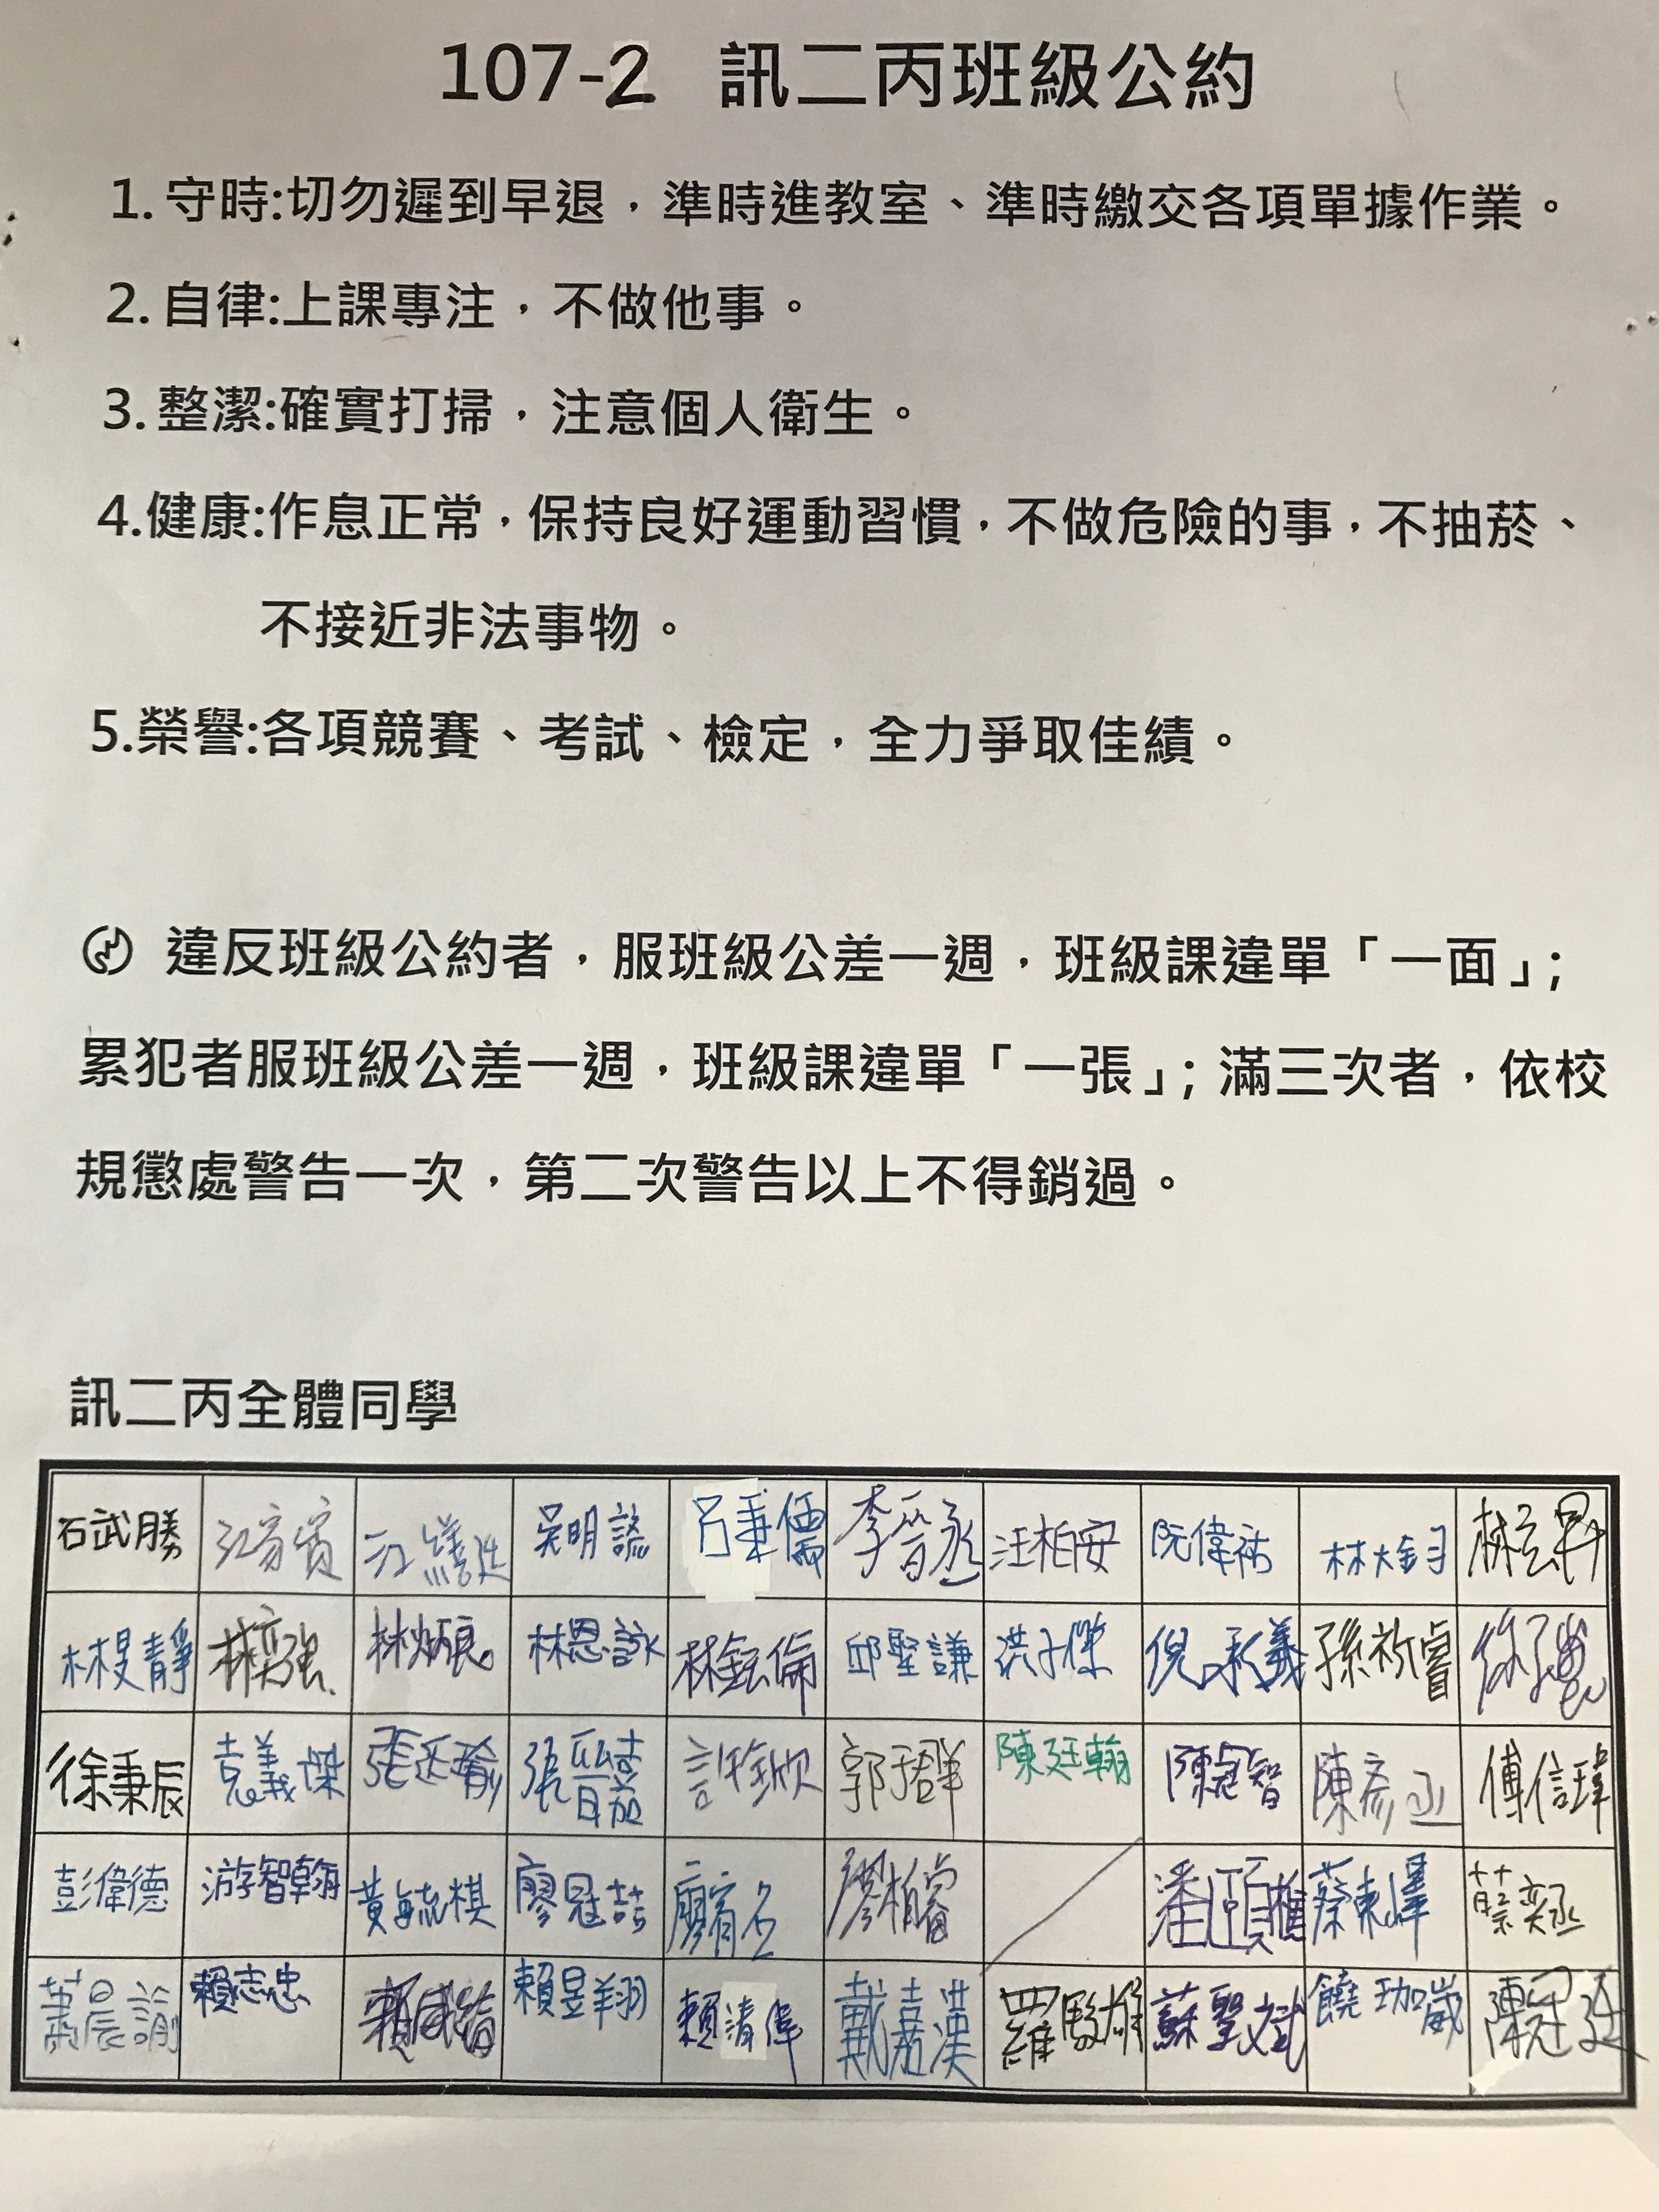 107-2 訊二丙班級公約
1. 守時:切勿遲到早退，準時進教室、準時繳交各項單據作業。
2. 自律:上課專注，不做他事。
3. 整潔:確實打掃，注意個人衛生。
4.健康:作息正常，保持良好運動習慣，不做危險的事，不抽菸、
不接近非法事物。
5.榮譽:各項競賽、考試、檢定，全力爭取佳績。
違反班級公約者，服班級公差一週，班級課違單「一面」;
累犯者服班級公差一週，班級課違單「一張」; 滿三次者，依校
規懲處警告一次，第二次警告以上不得銷過。
訊二丙全體同學
石武勝 吳明諺 呂秉儒 李晉丞 汪柏安 阮偉祐 林大鈞
林旻靜 林奕強 林炳良 林恩詠 林鈜倫 邱聖謙 洪子傑 倪承義 孫祈睿
徐秉辰 袁義傑 張廷瑜 許銘欣 郭于群 陳廷翰 陳冠智 陳彥丞 傅信瑋
彭偉德 游智翰 黃毓棋 廖冠喆 廖柏睿 蔡東曄 蔡奕丞
蕭晨諭 賴志忠 賴昱翔 賴清偉 戴嘉漢 羅駿雄 蘇聖斌 饒珈崴 陳冠廷